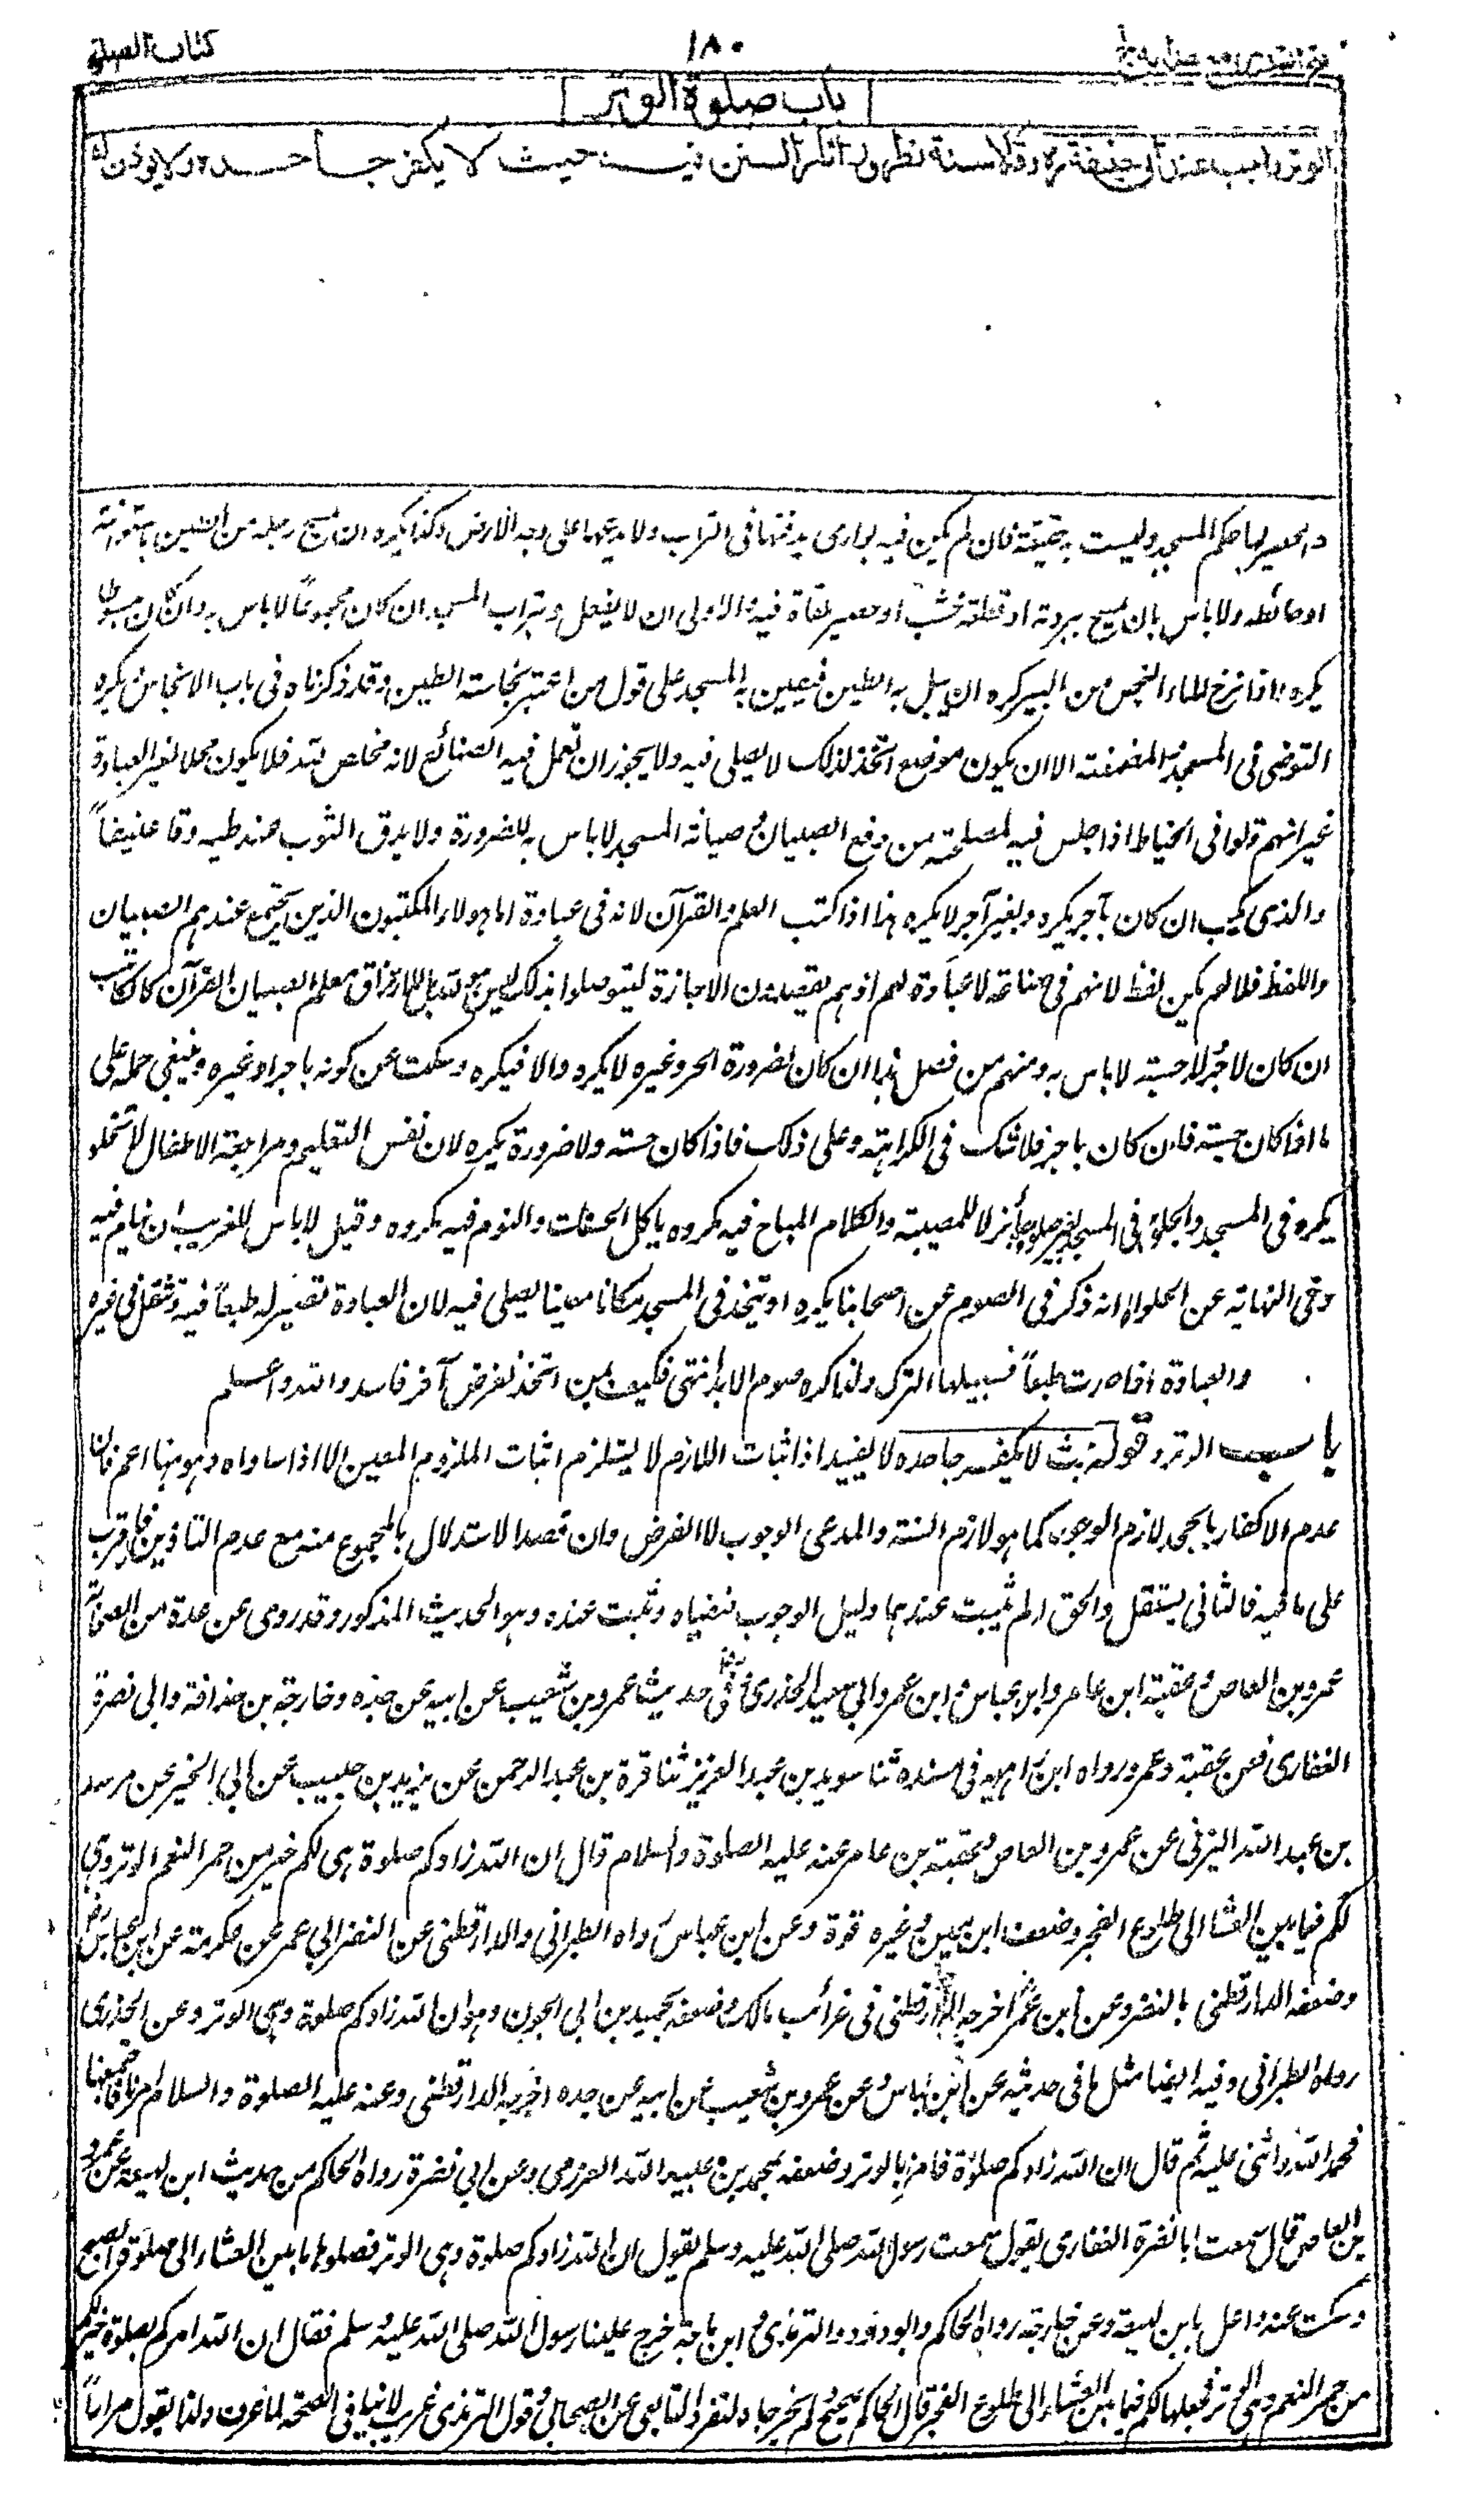 كتاب الصلوة
١٨٠
فتح القدير مع هداية ج ١
باب صلوة الوتر
الوتر واجب عند أبي حنيفة ره وقالا سنة لظهور آثار السنن فيه حيث لا يكفر جاحده ولا يؤذن له
والحصير لها حكم المسجد وليست به حقيقة فان لم يكن فيه بوارى يدفنها فى التراب ولا يدعها على وجه الارض وكذا يكره ان يمسح رجله من الطين باسطوانته
او حائطه ولا باس بان يمسح ببردته او قطعة خشب او حصير ملقاة فيه والاولى ان لا يفعل وبتراب المسجد ان كان مجموعاً لا باس به وان كان مبسوطا
يكره واذا نزح الماء النجس من البير كره ان يبل به الطين فيطين به المسجد على قول من اعتبر نجاسة الطين وقد ذكرناه فى باب الانجاس يكره
التوضى فى المسجد والمضمضة الا ان يكون موضع اتخذ لذلك لا يصلى فيه ولا يجوز ان تعمل فيه الصنائع لانه مخلص لله فلا يكون محلا لغير العبادة
غير انهم قالوا فى الخياط اذا جلس فيه لمصلحته من دفع الصبيان و صيانة المسجد لا باس به للضرورة ولا يدق الثوب عند طيه دقا عنيفاً
والذى يكتب ان كان بآجر يكره وبغير آجر لا يكره هذا اذا كتب العلم والقرآن لانه فى عبادة اما هولاء المكتبون الذين يجتمع عندهم الصبيان
واللغط فلا لو لم يكن لغط لانهم فى صناعة لا عبادة لهم اذ هم يقصدون الاجازة ليتوصلوا بذلك ليس هو لله بل للارتزاق معلم الصبيان القرآن كالكاتب
ان كان لاجر لا حسبة لا باس به ومنهم من فصل هذا ان كان لضرورة الحر وغيره لا يكره والا فيكره وسكت عن كونه باجر او غيره وينبغى حمله على
ما اذا كان حسبة فان كان باجر فلا شك فى الكراهة وعلى ذلك فاذا كان حسبة ولا ضرورة يكره لان نفس التعليم ومراجعة الاطفال لا تخلو
يكره فى المسجد والجلوس فى المسجد بغير صلوة جائز لا للمصيبة والكلام المباح فيه مكروه ياكل الحسنات والنوم فيه مكروه وقيل لا باس للغريب ان ينام فيه
وفى النهاية عن الحلوانى انه ذكر فى الصوم عن اصحابنا يكره ان يتخذ فى المسجد مكانا معينا يصلى فيه لان العبادة تصير له طبعاً فيه وتثقل فى غيره
والعبادة اذا صارت طبعاً فسبيلها الترك ولذا كره صوم الابد انتهى فكيف بمن اتخذ لغرض آخر فاسد والله اعلم
باب الوتر وقوله حيث لا يكفر جاحده لا يفيد اذ اثبات اللازم لا يستلزم اثبات الملزوم المعين الا اذا ساواه وهو هنا اعم فان
عدم الاكفار بالجحد لازم الوجوب كما هو لازم السنة والمدعى الوجوب لا الفرض وان قصد الاستدلال بالمجموع منه مع عدم التاذين فاقرب
على ما فيه فالثانى يستقل والحق انه لم يثبت عندهما دليل الوجوب فنفياه وثبت عنده وهو الحديث المذكور وقد روى عن عدة من الصحابة
عمرو بن العاص وعقبة ابن عامر وابن عباس و ابن عمر وابى سعيد الخدرى وفى حديث عمرو بن شعيب عن ابيه عن جده وخارجة بن حذافة وابى نضرة
الغفارى فعن عقبة وعمرو رواه ابن راهويه فى مسنده ثنا سويد بن عبد العزيز ثنا قرة بن عبد الرحمن عن يزيد بن حبيب عن ابى الخير عن مرسد
بن عبد الله اليزنى عن عمرو بن العاص وعقبة بن عامر عنه عليه الصلوة والسلام قال ان الله زادكم صلوة هى لكم خير من حمر النعم الوتر وهى
لكم فيما بين العشا الى طلوع الفجر وضعف ابن معين وغيره قرة وعن ابن عباس رواه الطبرانى والدارقطنى عن النضر ابى عمر عن عكرمة عن ابن عباس رض
وضعفه الدارقطنى بالنضر وعن ابن عمر اخرجه الدارقطنى فى غرائب مالك وضعفه بحميد بن ابى الجون وهو ان الله زادكم صلوة وهى الوتر وعن الخدرى
رواه الطبرانى وفيه ايضا مثل ما فى حديثه عن ابن عباس وعن عمرو بن شعيب عن ابيه عن جده اخرجه الدارقطنى وعنه عليه الصلوة والسلام امرنا فاجتمعنا
فحمد الله واثنى عليه ثم قال ان الله زادكم صلوة فامرنا بالوتر وضعفه بمحمد بن عبيد الله العزرمى وعن ابى نضرة رواه الحاكم من حديث ابن لهيعة عن عمرو
بن العاص قال سمعت ابا نضرة الغفارى يقول سمعت رسول الله صلى الله عليه وسلم يقول ان الله زادكم صلوة وهى الوتر فصلوها ما بين العشاء الى صلوة الصبح
وسكت عنه واعل بابن لهيعة وعن خارجة رواه الحاكم وابو داود والترمذى و ابن ماجة خرج علينا رسول الله صلى الله عليه وسلم فقال ان الله امركم بصلوة خير لكم
من حمر النعم وهى الوتر فجعلها لكم فيما بين العشاء الى طلوع الفجر قال الحاكم صحيح ولم يخرجاه لتفرد التابعى عن الصحابى وقول الترمذى غريب لا ينافى الصحة لما عرف ولذا يقول مراراً